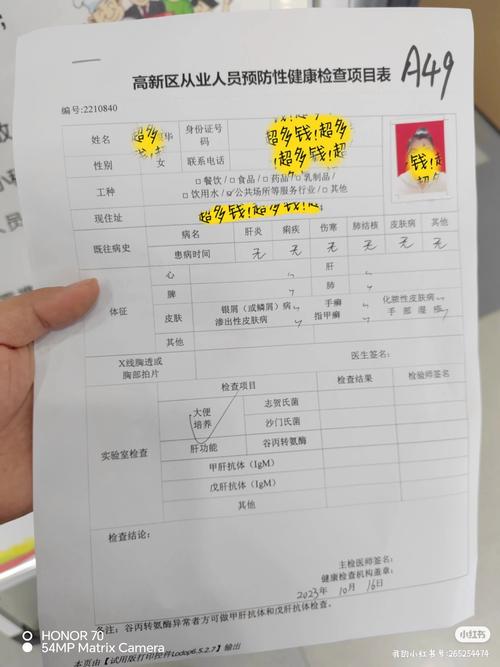 高新区从业人员预防性健康检查项目表
A49
编号:2210840
姓名 超多华 身份证号码 超多钱!超多
性别 女 联系电话 超多钱!超多
工种 □餐饮/□食品/□药品/□乳制品/
□饮用水/☑公共场所等服务行业/□其他
现住址 超多钱!超多钱!
既往病史 病名 肝炎 痢疾 伤寒 肺结核 皮肤病 其他
患病时间 无 无 无 无 无 无
体征 心 肝
脾 肺
皮肤 银屑(或鳞屑)病 手癣 化脓性皮肤病
渗出性皮肤病 指甲癣 手部湿疹
其他
X线胸透或胸部拍片 医生签名:
实验室检查 检查项目 检查结果 检验师签名
大便培养 志贺氏菌
沙门氏菌
肝功能 谷丙转氨酶
甲肝抗体(IgM)
戊肝抗体(IgM)
其他
检查结论:
主检医师签名:
健康检查机构盖章:
2023年 10月 16日
备注:谷丙转氨酶异常者方可做甲肝抗体和戊肝抗体检查。
本页由【试用版打印控件Lodop6.5.2.7】输出
HONOR 70
54MP Matrix Camera
小红书
我的小红书号:265254474